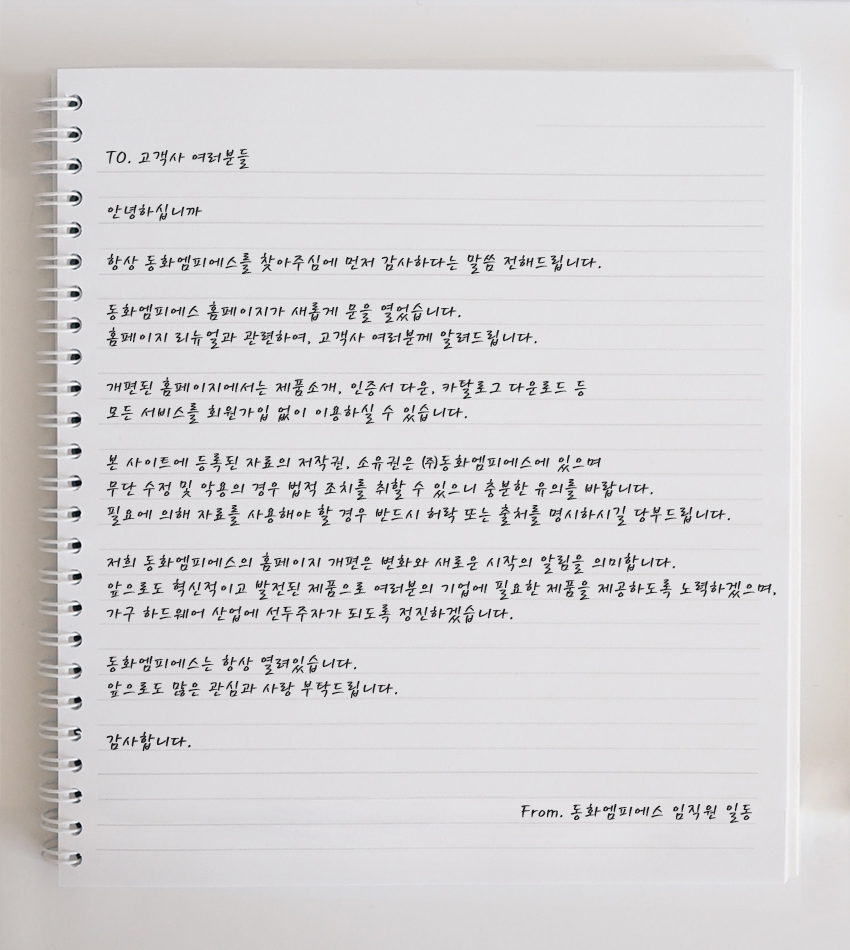 TO. 고객사 여러분들
안녕하십니까
항상 동화엠피에스를 찾아주심에 먼저 감사하다는 말씀 전해드립니다.
동화엠피에스 홈페이지가 새롭게 문을 열었습니다.
홈페이지 리뉴얼과 관련하여, 고객사 여러분께 알려드립니다.
개편된 홈페이지에서는 제품소개, 인증서 다운, 카달로그 다운로드 등
모든 서비스를 회원가입 없이 이용하실 수 있습니다.
본 사이트에 등록된 자료의 저작권, 소유권은 ㈜동화엠피에스에 있으며
무단 수정 및 악용의 경우 법적 조치를 취할 수 있으니 충분한 유의를 바랍니다.
필요에 의해 자료를 사용해야 할 경우 반드시 허락 또는 출처를 명시하시길 당부드립니다.
저희 동화엠피에스의 홈페이지 개편은 변화와 새로운 시작의 알림을 의미합니다.
앞으로도 혁신적이고 발전된 제품으로 여러분의 기업에 필요한 제품을 제공하도록 노력하겠으며,
가구 하드웨어 산업에 선두주자가 되도록 정진하겠습니다.
동화엠피에스는 항상 열려있습니다.
앞으로도 많은 관심과 사랑 부탁드립니다.
감사합니다.
From. 동화엠피에스 임직원 일동